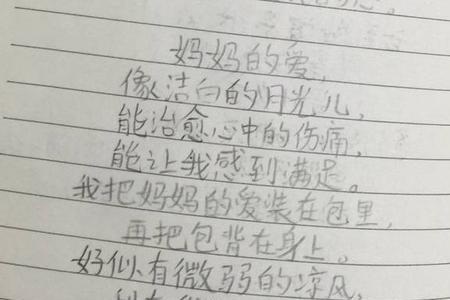 妈妈的爱,
像洁白的月光儿,
能治愈心中的伤痛,
能让我感到满足。
我把妈妈的爱装在包里,
再把包背在身上。
好似有微弱的凉风,